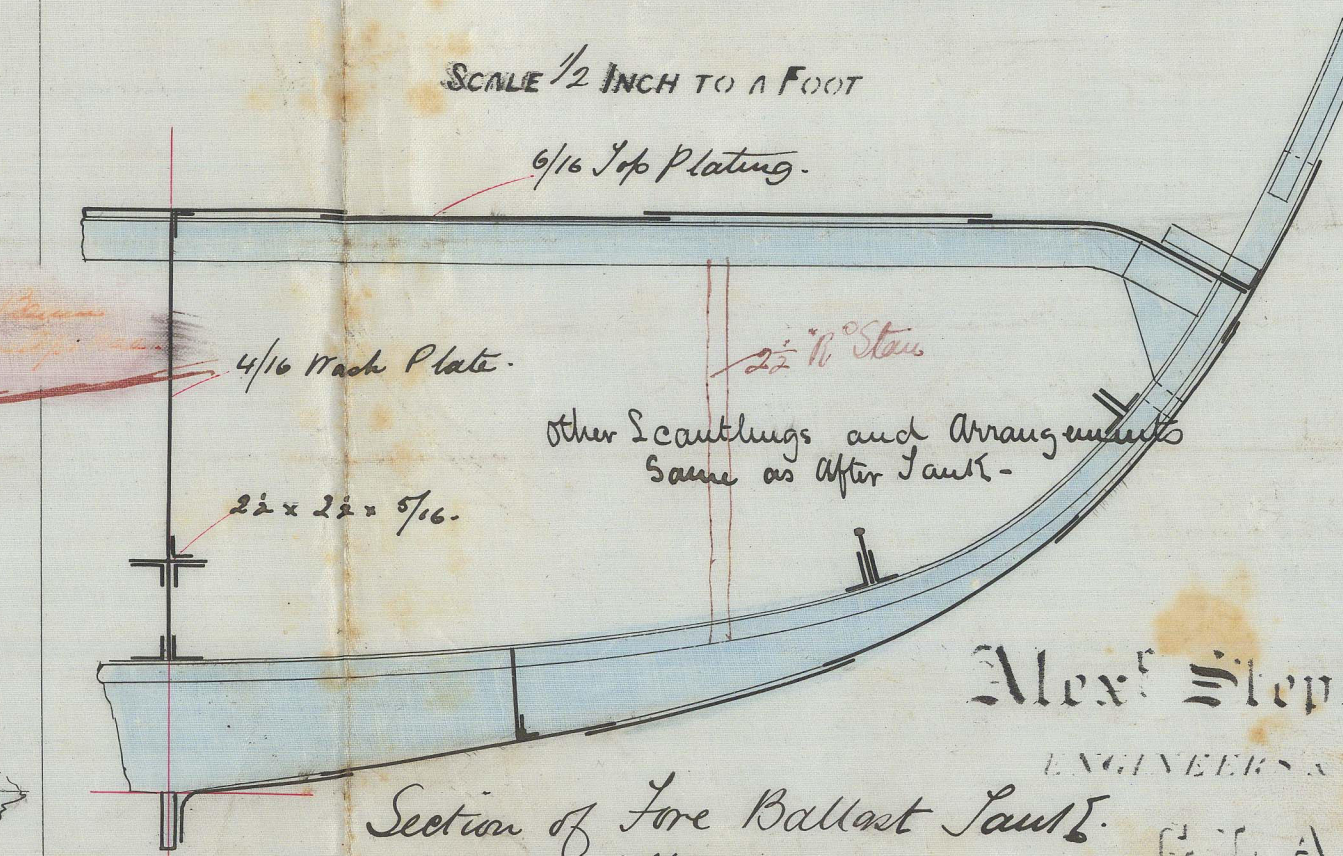 SCALE 1/2 INCH TO A FOOT
6/16 Top Plating.
4/16 Wash Plate.
2½ "R° Stan
Other Scantlings and Arrangements
Same as After Tank -
2½ x 2½ x 5/16.
Alexr Step
ENGINEERS &
Section of Fore Ballast Tank.